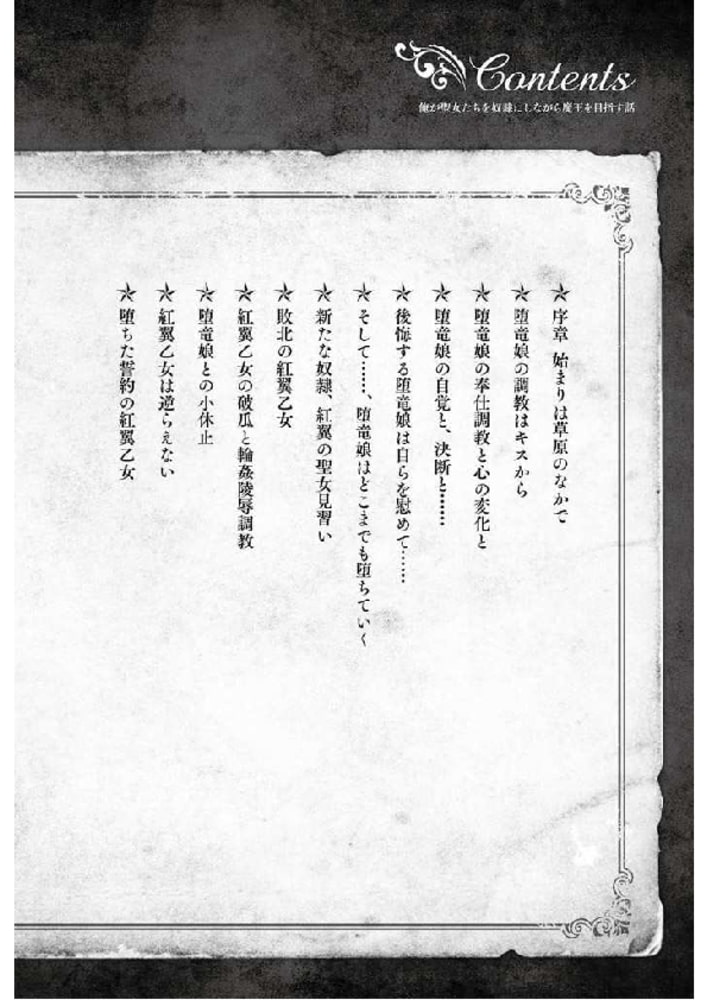 Contents
俺が聖女たちを奴隷にしながら魔王を目指す話
★序章 始まりは草原のなかで
★堕竜娘の調教はキスから
★堕竜娘の奉仕調教と心の変化と
★堕竜娘の自覚と、決断と……
★後悔する堕竜娘は自らを慰めて……
★そして……、堕竜娘はどこまでも堕ちていく
★新たな奴隷、紅翼の聖女見習い
★敗北の紅翼乙女
★紅翼乙女の破瓜と輪姦陵辱調教
★堕竜娘との小休止
★紅翼乙女は逆らえない
★堕ちた誓約の紅翼乙女